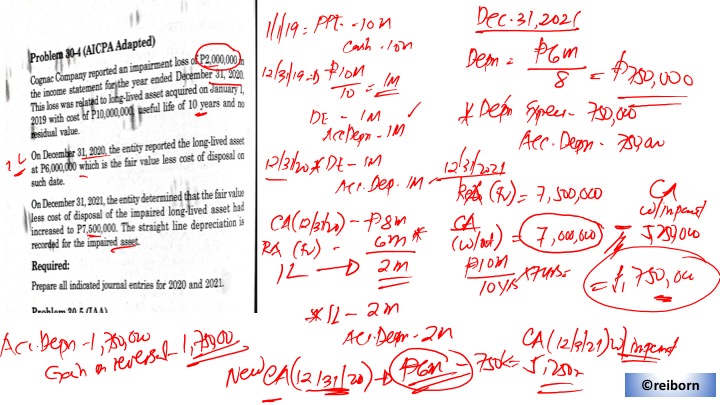 Problem 30-4 (AICPA Adapted)
Cognac Company reported an impairment loss of P2,000,000 in
the income statement for the year ended December 31, 2020.
This loss was related to long-lived asset acquired on January 1,
2019 with cost of P10,000,000, useful life of 10 years and no
residual value.
On December 31, 2020, the entity reported the long-lived asset
at P6,000,000 which is the fair value less cost of disposal on
such date.
On December 31, 2021, the entity determined that the fair value
less cost of disposal of the impaired long-lived asset had
increased to P7,500,000. The straight line depreciation is
recorded for the impaired asset.
Required:
Prepare all indicated journal entries for 2020 and 2021.
Problem 30-5 (IAA)
IL
1/1/19: PPE - 10M
Cash - 10M
12/31/19 P10M
10 = 1M
DE - 1M
Acc Depn - 1M
12/31/20 * DE - 1M
Acc. Dep. 1M
CA (12/31/20) - P8M
RA (FV) - 6M *
IL 2M
* IL - 2M
Acc. Depn - 2M
New CA (12/31/20) P6M - 750K = 5,250K
CA (12/31/21) w/ impemt
Dec. 31, 2021
Depn = P6M
8 = P750,000
* Depn Expense - 750,000
Acc. Depn - 750,000
12/31/2021
RA (FV) = 7,500,000
CA
(w/out) = 7,000,000
P10M
10 yrs x 7 yrs
CA
w/ impemt
5,250,000
= 1,750,000
Acc. Depn - 1,750,000
Gain on reversal - 1,750,000
©reiborn